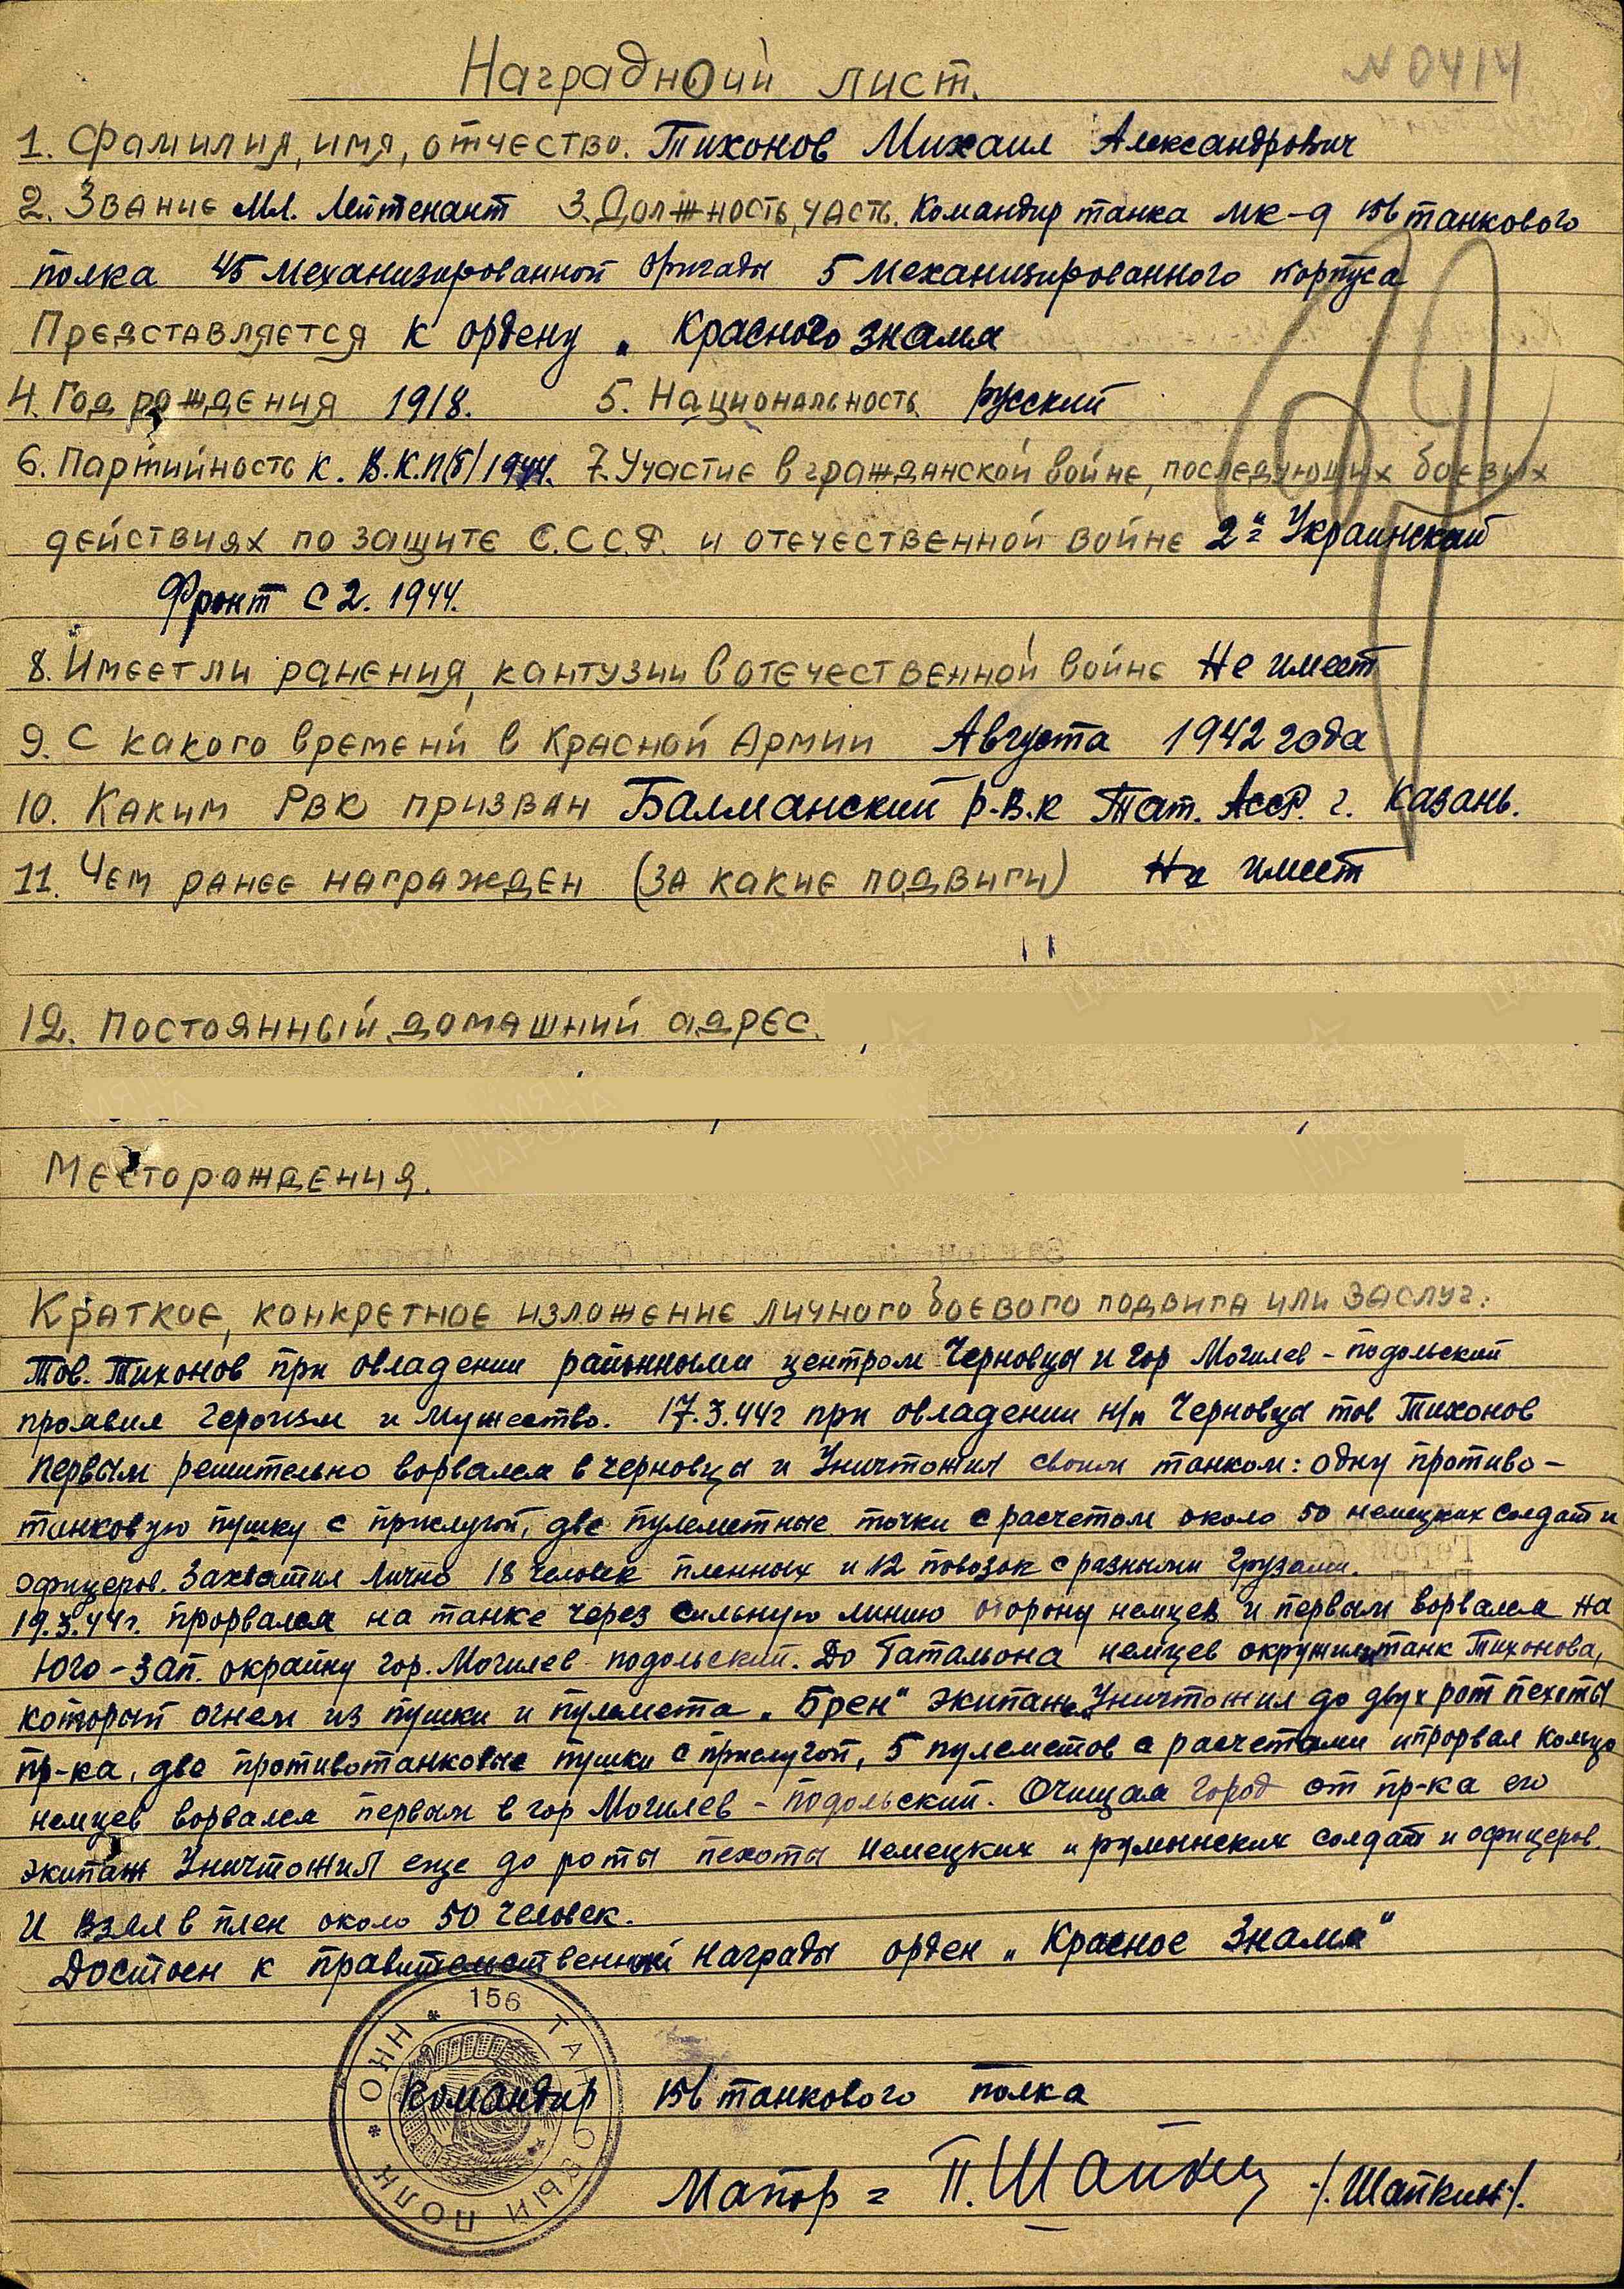 Наградной лист.
N 0414
1. Фамилия, имя, отчество. Тихонов Михаил Александрович
2. Звание Мл. Лейтенант 3. Должность, часть. Командир танка МК-9 156 танкового
полка 45 механизированной бригады 5 механизированного корпуса
Представляется к ордену „ Красного знамя
4. Год рождения 1918. 5. Национальность русский
6. Партийность К. В.К.П(б) 1944. 7. Участие в гражданской войне, последующих боевых
действиях по защите С.С.С.Р. и отечественной войне 2й Украинский
Фронт с 2. 1944.
8. Имеет ли ранения, кантузии в отечественной войне Не имеет
9. С какого времени в Красной Армии Августа 1942 года
10. Каким РВК призван Балманский Р.В.К Тат. Асср. г. Казань.
11. Чем ранее награжден (за какие подвиги) Не имеет
12. Постоянный домашний адрес.
Месторождения.
Краткое, конкретное изложение личного боевого подвига или заслуг:
Тов. Тихонов при овладении районными центром Черновцы и гор Могилев - подольский
проявил героизм и мужество. 17.3.44г при овладении н/п Черновцы тов Тихонов
первым решительно ворвался в черновцы и Уничтожил своим танком: одну противо-
танковую пушку с прислугой, две пулеметные точки с расчетом около 50 немецких солдат и
офицеров. Захватил Лично 18 человек пленных и 12 повозок с разными грузами.
19.3.44г. прорвался на танке через сильную линию оборону немцев и первым ворвался на
Юго-зап. окраину гор. Могилев подольский. До Батальона немцев окружили танк Тихонова,
который огнем из пушки и пулемета „Брен" экипаж Уничтожил до двух рот пехоты
пр-ка, две противотанковые пушки с прислугой, 5 пулеметов с расчетами и прорвал кольцо
немцев ворвался первым в гор Могилев - Подольский. Очищая город от пр-ка его
экипаж Уничтожил еще до роты пехоты немецких и румынских солдат и офицеров
и взял в плен около 50 человек.
Достоен к правительственной награды орден „ Красное Знамя"
156 ТАНКОВЫЙ ПОЛК * ОНН *
Командир 156 танкового полка
Майор - П. Шапкин /Шапкин/.